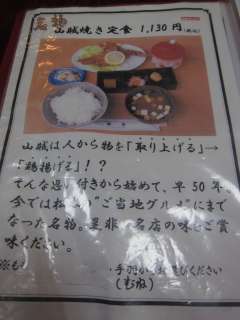 名物
山賊焼き定食 1,130円(税込)
山賊は人から物を「取り上げる」→
「鶏揚げる」!?
そんな思い付きから始めて、早50年。
今では “ご当地グルメ”にまで
なった名物。是非、名店の味をご賞
味ください。
※も
・手羽か ください
(むね)